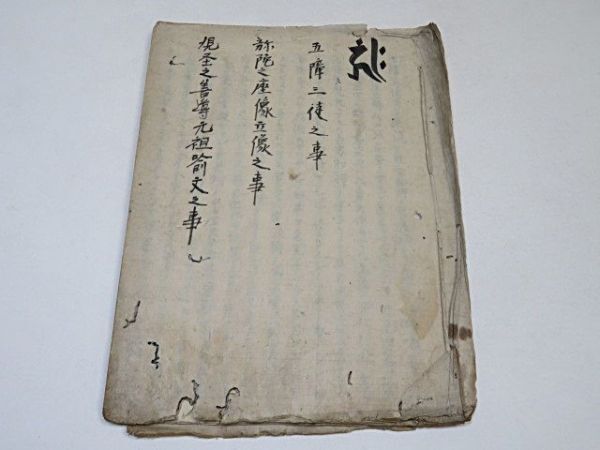 𑖮𑖿𑖨𑖱𑖾
五障三従之事
弥陀之座像立像之事
現圣之善導元祖喻文之事